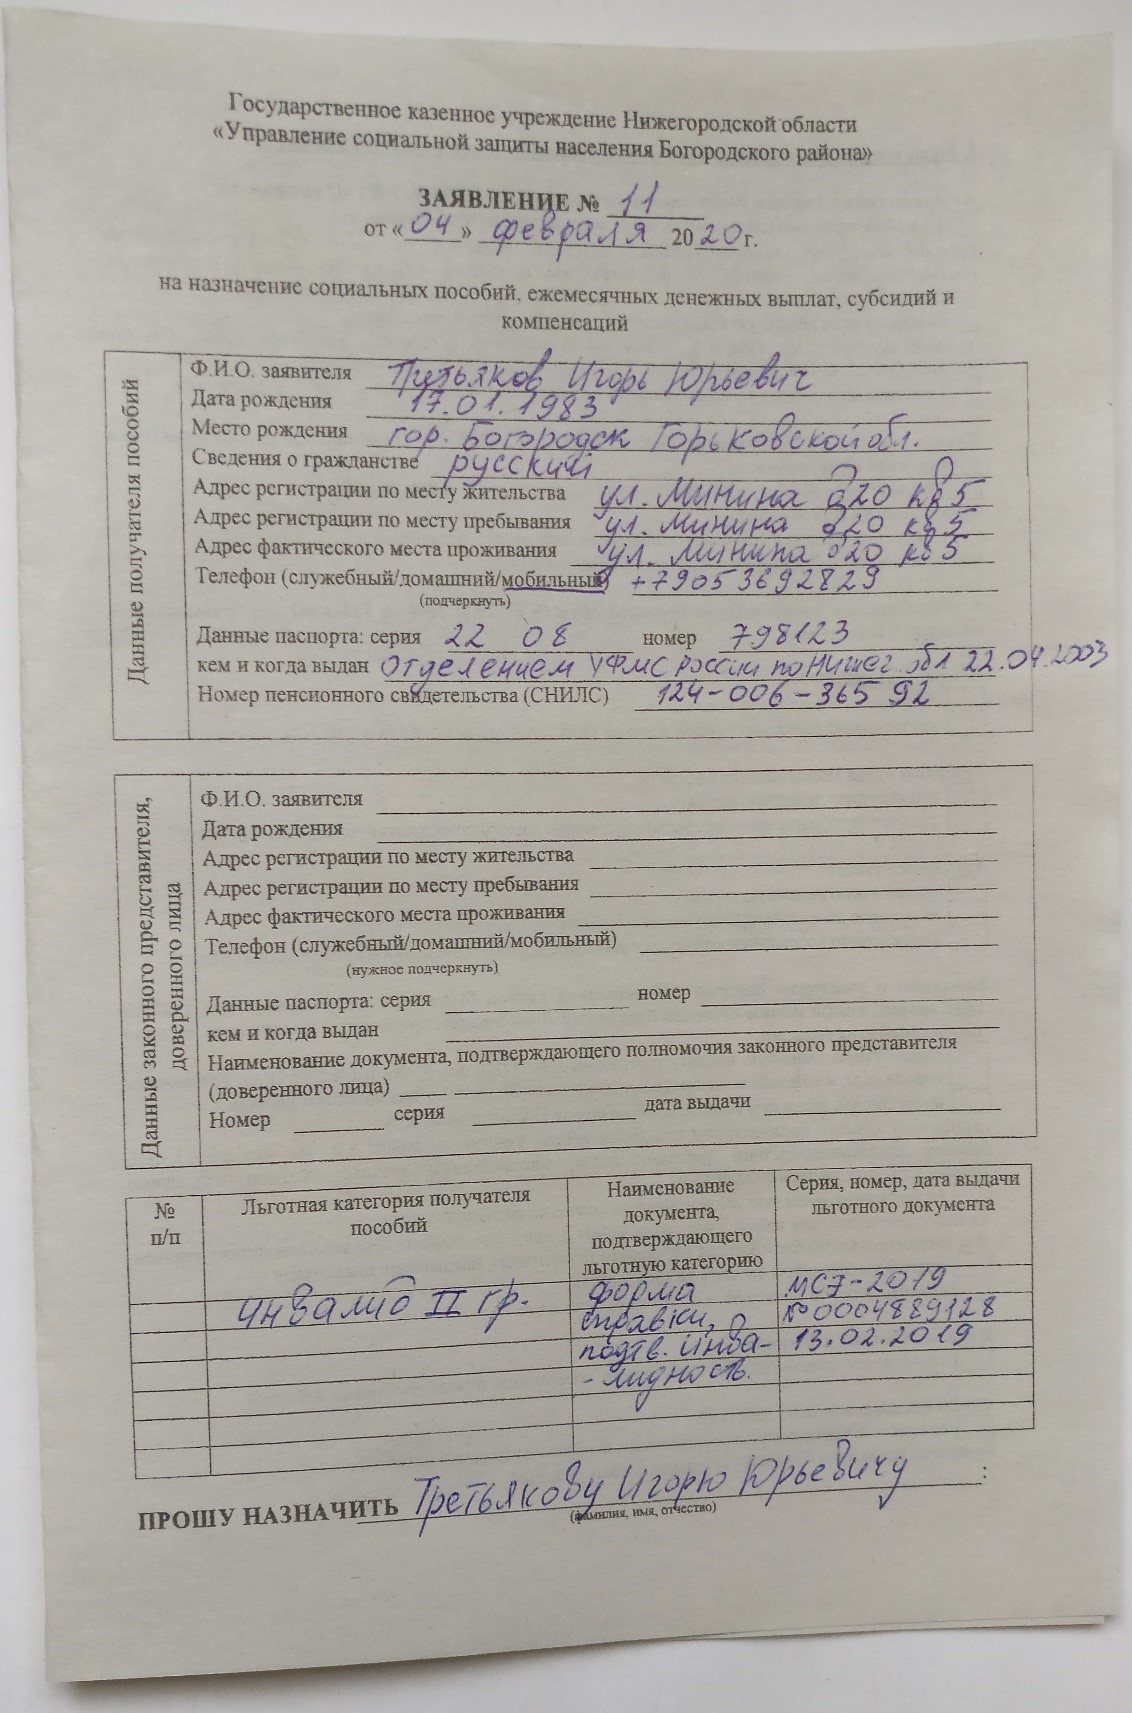 Государственное казенное учреждение Нижегородской области
«Управление социальной защиты населения Богородского района»
ЗАЯВЛЕНИЕ № 11
от «04» февраля 2020 г.
на назначение социальных пособий, ежемесячных денежных выплат, субсидий и
компенсаций
Данные получателя пособий
Ф.И.О. заявителя Третьяков Игорь Юрьевич
Дата рождения 17.01.1983
Место рождения гор. Богородск Горьковской обл.
Сведения о гражданстве русский
Адрес регистрации по месту жительства ул. Минина д20 кв5
Адрес регистрации по месту пребывания ул. Минина д20 кв5
Адрес фактического места проживания ул. Минина д20 кв5
Телефон (служебный/домашний/мобильный) +79053692829
(подчеркнуть)
Данные паспорта: серия 22 08 номер 798123
кем и когда выдан Отделением УФМС России по Нижег. обл 22.04.2003
Номер пенсионного свидетельства (СНИЛС) 124-006-365 92
Данные законного представителя,
доверенного лица
Ф.И.О. заявителя
Дата рождения
Адрес регистрации по месту жительства
Адрес регистрации по месту пребывания
Адрес фактического места проживания
Телефон (служебный/домашний/мобильный)
(нужное подчеркнуть)
Данные паспорта: серия номер
кем и когда выдан
Наименование документа, подтверждающего полномочия законного представителя
(доверенного лица)
Номер серия дата выдачи
№
п/п
Льготная категория получателя
пособий
Наименование
документа,
подтверждающего
льготную категорию
Серия, номер, дата выдачи
льготного документа
инвалид II гр.
форма
справки,
подтв. инва-
-лидность.
МСЭ-2019
№0004889128
13.02.2019
ПРОШУ НАЗНАЧИТЬ Третьякову Игорю Юрьевичу :
(фамилия, имя, отчество)